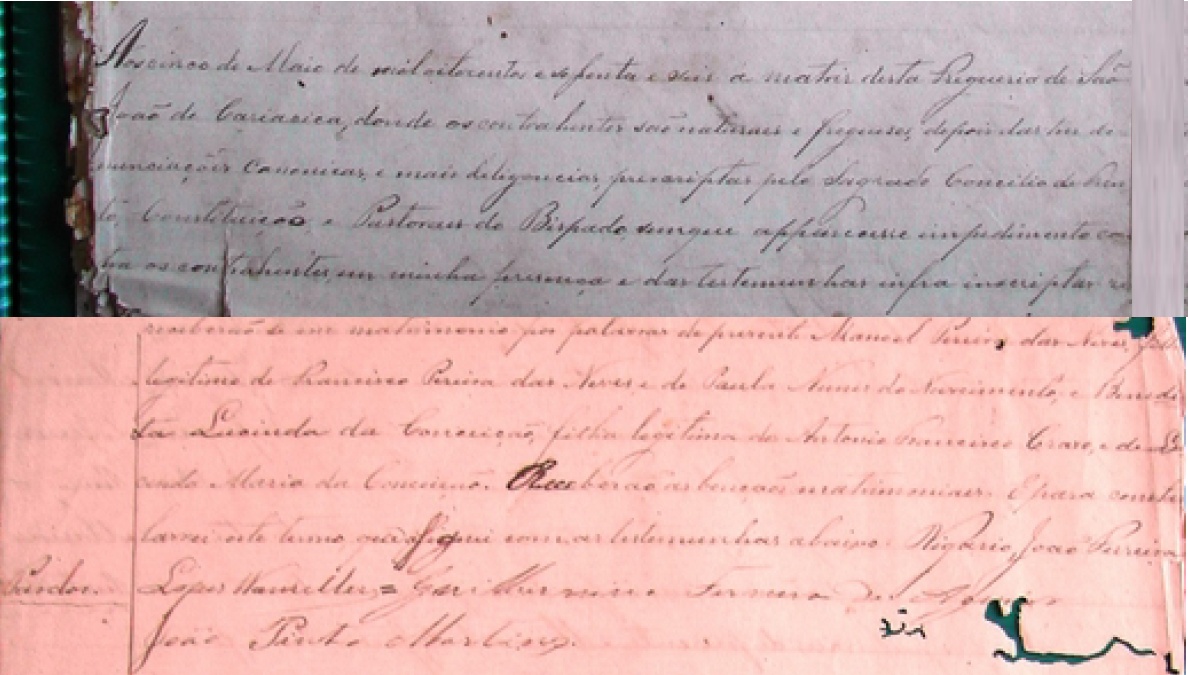 Aos cinco de Maio de mil oitocentos e sepenta e seis a matris desta Freguesia de São
João de Cariacica, donde os contrahentes são naturaes e fregueses, depois das tres de-
nunciações canonicas, e mais deligencias, prescriptas pelo Sagrado Concilio de Tren
to, Constituição, e Pastoraes do Bispado, sem que apparecesse impedimento con
tra os contrahentes, em minha presença e das testemunhas infra inscriptas re
ceberão-se em matrimonio por palavras de presente Manoel Pereira das Neves, filho
legitimo de Francisco Pereira das Neves e de Paula Nunes do Nascimento, e Benedi
ta Lucinda da Conceição, filha legitima de Antonio Francisco e de Lu
cinda Maria da Conceição. Receberão as bençãos matrimoniaes. E para constar
lavrei este termo, que assignei com as testemunhas abaixo. Vigario, João Ferreira
Pardos.
Lopes Wanzeller = Ferreira
João Pinto Martins.